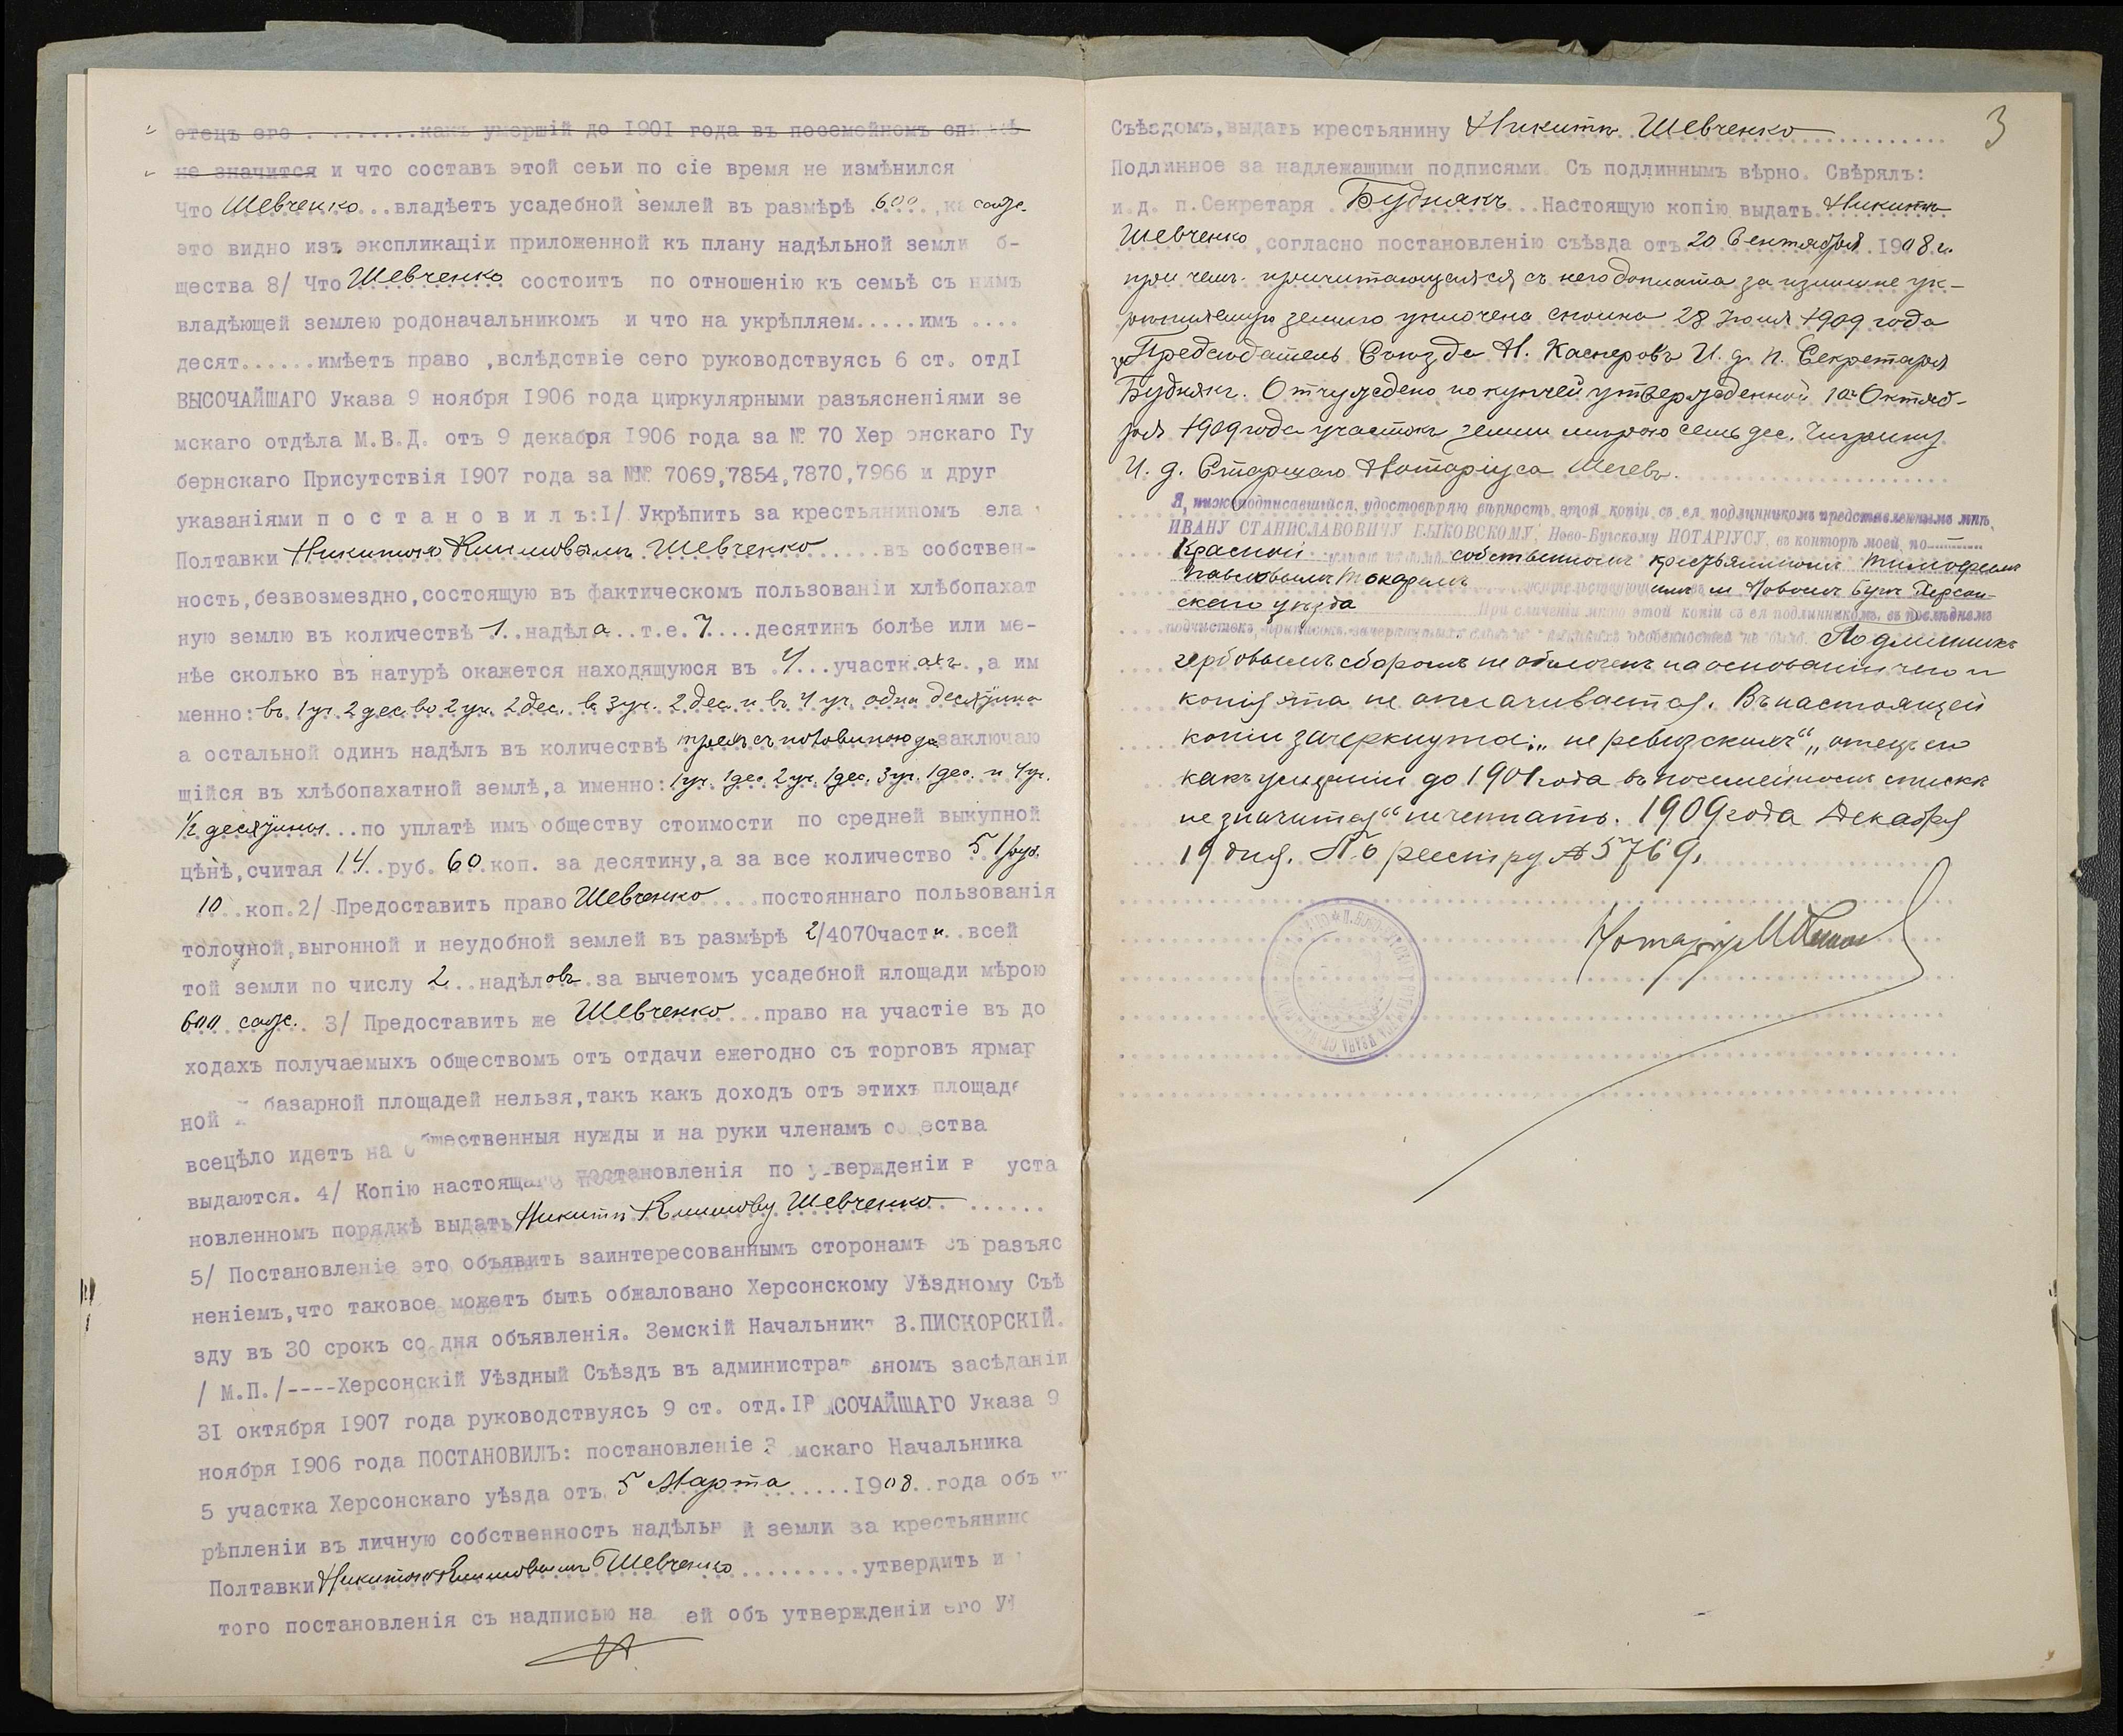 отецъ его . ........какъ умершій до 1901 года въ посемейномъ
не значится и что составъ этой сеьи по сіе время не измѣнился
Что Шевченко...владѣетъ усадебной землей въ размѣрѣ 600 саж.
это видно изъ экспликаціи приложенной къ плану надѣльной земли б-
щества 8/ Что Шевченко состоитъ по отношенію къ семьѣ съ нимъ
владѣющей землею родоначальникомъ и что на укрѣпляем.....имъ ....
десят......имѣетъ право ,вслѣдствіе сего руководствуясь 6 ст. отдI
ВЫСОЧАЙШАГО Указа 9 ноября I906 года циркулярными разъясненіями зе
мскаго отдѣла М.В.Д. отъ 9 декабря I906 года за № 70 Хер онскаго Гу
бернскаго Присутствія I907 года за №№ 7069,7854,7870,7966 и друг
указаніями п о с т а н о в и л ъ:I/ Укрѣпить за крестьяниномъ ела
Полтавки Никитою Климовымъ Шевченко......въ собствен-
ность,безвозмездно,состоящую въ фактическомъ пользованіи хлѣбопахат
ную землю въ количествѣ 1..надѣла...т.е.7....десятинъ болѣе или ме-
нѣе сколько въ натурѣ окажется находящуюся въ .4...участк.ахъ..,а им
менно: въ 1 уч. 2 дес. во 2 уч. 2 дес. въ 3 уч. 2 дес. и въ 4 уч. одна десятина
а остальной одинъ надѣлъ въ количествѣ трехъ съ половиною д. заключаю
щійся въ хлѣбопахатной землѣ,а именно: 1 уч. 1 дес. 2 уч. 1 дес. 3 уч. 1 дес. и 4 уч.
1/2 десятины...по уплатѣ имъ обществу стоимости по средней выкупной
цѣнѣ,считая 14..руб. 60.коп. за десятину,а за все количество 51 руб.
10...коп.2/ Предоставить право Шевченко....постояннаго пользованія
толочной,выгонной и неудобной землей въ размѣрѣ 2/4070части..всей
той земли по числу 2...надѣловъ..за вычетомъ усадебной площади мѣрою
600 саж. 3/ Предоставить же Шевченко...право на участіе въ до
ходахъ получаемыхъ обществомъ отъ отдачи ежегодно съ торговъ ярмар
ной базарной площадей нельзя,такъ какъ доходъ отъ этихъ площаде
всецѣло идетъ на общественныя нужды и на руки членамъ общества
выдаются. 4/ Копію настоящаго постановленія по утвержденіи в уста
новленномъ порядкѣ выдать Никитѣ Климову Шевченко.......
5/ Постановленіе это объявить заинтересованнымъ сторонамъ съ разъяс
неніемъ,что таковое можетъ быть обжаловано Херсонскому Уѣздному Съѣ
зду въ 30 срокъ со дня объявленія. Земскій Начальникъ В.ПИСКОРСКІЙ.
/ М.П./----Херсонскій Уѣздный Съѣздъ въ административномъ засѣданіи
3I октября I907 года руководствуясь 9 ст. отд.I ВЫСОЧАЙШАГО Указа 9
ноября I906 года ПОСТАНОВИЛЪ: постановленіе Земскаго Начальника
5 участка Херсонскаго уѣзда отъ 5 Марта ........I908..года объ у
рѣпленіи въ личную собственность надѣльн й земли за крестьянино
Полтавки Никитою Климовымъ Шевченко.........утвердить и
того постановленія съ надписью на ей объ утвержденіи его
3
Съѣздомъ,выдать крестьянину Никитѣ Шевченко
Подлинное за надлежащими подписями. Съ подлиннымъ вѣрно. Свѣрялъ:
и.д. п.Секретаря Буднякъ...Настоящую копію выдать Никитѣ
Шевченко,согласно постановленію съѣзда отъ 20 Сентября 1908 г.
при чемъ причитающаяся съ него доплата за излишне ук-
рѣпляемую землю уплочена сполна 28 Іюля 1909 года
Предсѣдатель Съѣзда Н. Касперовъ И. д. п. Секретаря
Буднякъ. Отчуждено по купчей утвержденной 10 Октяб-
ря 1909 года участокъ земли мѣрою семь дес.
И. д. Старшаго Нотаріуса
Я, нижеподписавшійся, удостовѣряю вѣрность этой копіи съ ея подлинникомъ представленнымъ мнѣ,
ИВАНУ СТАНИСЛАВОВИЧУ БЫКОВСКОМУ, Ново-Бугскому НОТАРІУСУ, въ конторѣ моей, по
Красной собственномъ крестьяниномъ Тимофеемъ
Павловымъ Токаремъ жительствующимъ м. Новомъ Бугѣ Херсон-
скаго уѣзда При сличеніи мною этой копіи съ ея подлинникомъ, въ послѣднемъ
подчистокъ, приписокъ, зачеркнутыхъ словъ и никакихъ особенностей не было. Подлинникъ
гербовымъ сборомъ не обложенъ на основаніи чего и
копія эта не оплачивается. Въ настоящей
копіи зачеркнуто: „не ревизскимъ“ „отецъ его
какъ умершій до 1901 года въ посемейномъ спискѣ
не значится“ не читать. 1909 года Декабря
19 дня. По реестру № 5769.
Нотаріусъ